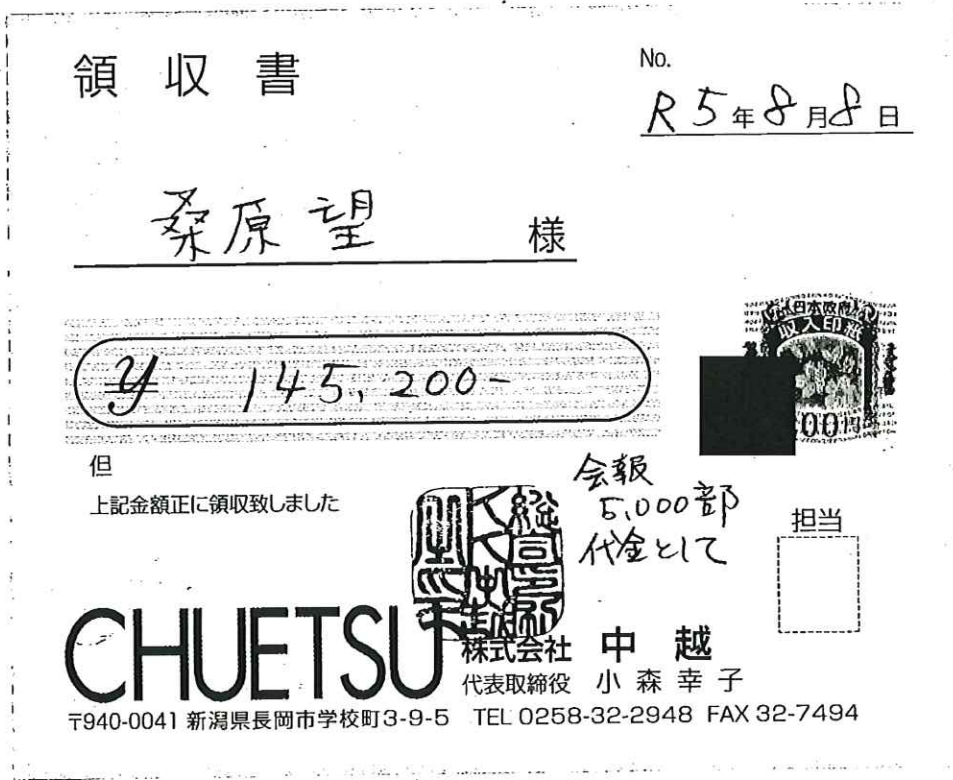 領収書
No.
R5年8月8日
桑原望 様
¥ 145,200-
日本政府
収入印紙
00円
但
上記金額正に領収致しました
会報
5,000部
代金として
担当
CHUETSU
株式会社 中越
代表取締役 小森幸子
〒940-0041 新潟県長岡市学校町3-9-5 TEL 0258-32-2948 FAX 32-7494